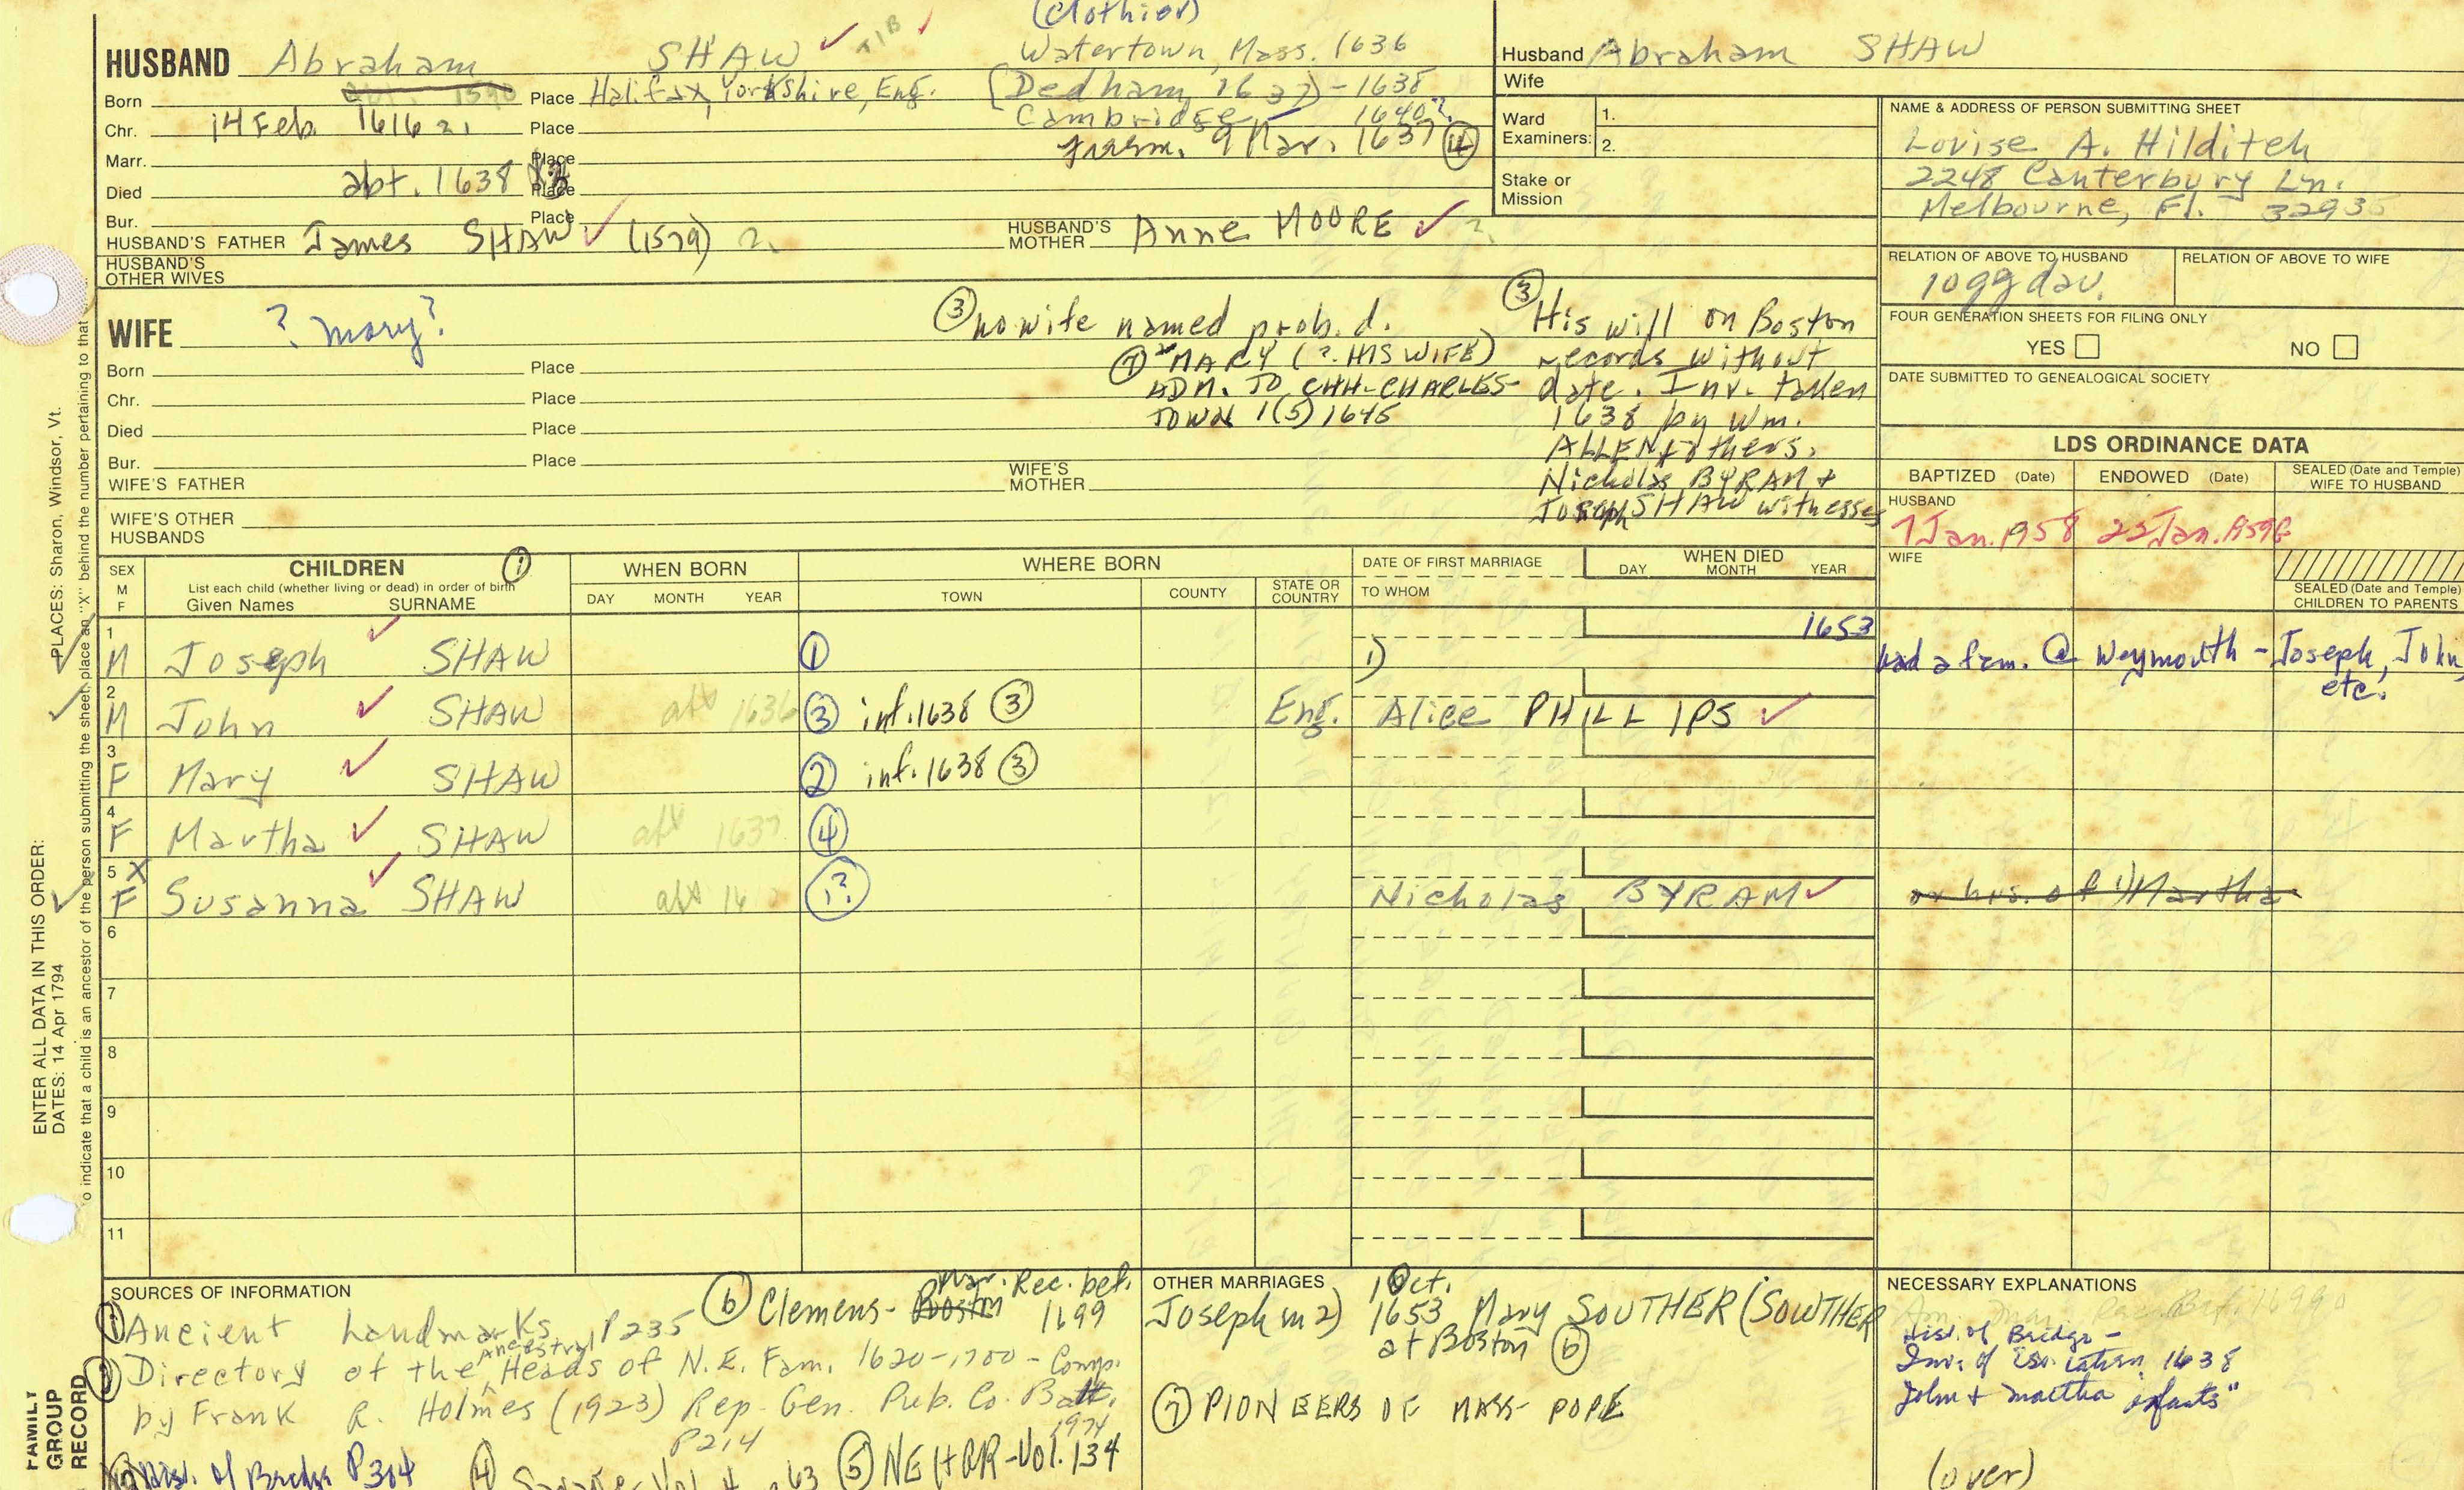 (Clothier)
HUSBAND Abraham SHAW ✓ TIB ✓ Watertown, Mass. 1636
Born abt. 1590 Place Halifax, Yorkshire, Eng. (Dedham, 1637)-1638
Chr. 14 Feb. 1616 2. Place Cambridge 1640?
Marr. Place frasm. 9 Mar. 1637 ④
Died abt. 1638 Place
Bur. Place
HUSBAND'S FATHER James SHAW ✓ (1579) 2. HUSBAND'S MOTHER Anne MOORE ✓ 2.
HUSBAND'S OTHER WIVES
Husband Abraham SHAW
Wife
Ward Examiners: 1.
2.
Stake or Mission
NAME & ADDRESS OF PERSON SUBMITTING SHEET
Lovise A. Hilditch
2248 Canterbury Ln.
Melbourne, Fl. 32935
RELATION OF ABOVE TO HUSBAND RELATION OF ABOVE TO WIFE
10 gg dau.
FOUR GENERATION SHEETS FOR FILING ONLY
YES NO
DATE SUBMITTED TO GENEALOGICAL SOCIETY
WIFE ? Mary?
Born Place
Chr. Place
Died Place
Bur. Place
WIFE'S FATHER WIFE'S MOTHER
WIFE'S OTHER HUSBANDS
③ no wife named prob. d.
⑦ "MARY (? HIS WIFE)
ADM. TO CHH-CHARLES-
TOWN 1(5) 1645
③ His will on Boston
records without
date. Inv. taken
1638 by Wm.
ALLEN & others.
Nicholas BYRAM &
Joseph SHAW witnesses
LDS ORDINANCE DATA
BAPTIZED (Date) ENDOWED (Date) SEALED (Date and Temple) WIFE TO HUSBAND
HUSBAND
7 Jan. 1958 23 Jan. 1959
WIFE
SEALED (Date and Temple) CHILDREN TO PARENTS
SEX M F CHILDREN ① WHEN BORN WHERE BORN DATE OF FIRST MARRIAGE WHEN DIED
List each child (whether living or dead) in order of birth
Given Names SURNAME DAY MONTH YEAR TOWN COUNTY STATE OR COUNTRY TO WHOM DAY MONTH YEAR
1 M Joseph ✓ SHAW ① 1) 1653 had a fam. @ Weymouth - Joseph, John, etc.
2 M John ✓ SHAW aft 1636 ③ inf. 1638 ③ Eng. Alice PHILLIPS ✓
3 F Mary ✓ SHAW ② inf. 1638 ③
4 F Martha ✓ SHAW aft 1637 ④
5 X F Susanna ✓ SHAW aft ①? Nicholas BYRAM ✓ or hrs. of 1) Martha
6
7
8
9
10
11
SOURCES OF INFORMATION
① Ancient Landmarks P235
② Directory of the Ancestral Heads of N.E. Fam. 1620-1700 - Comp.
by Frank R. Holmes (1923) Rep. Gen. Pub. Co. Balt. 1974
P214
Hist. of Bridge P304 ④ Vol. 4 63 ⑤ NEHGR-Vol. 134
⑥ Clemens - Boston Mar. Rec. bef. 1699
OTHER MARRIAGES
Joseph m 2) 1 Oct. 1653 Mary SOUTHER (SOWTHER
at Boston ⑥
⑦ PIONEERS OF MASS- POPE
NECESSARY EXPLANATIONS
Hist. of Bridge -
Inv. of 1638
John & Martha infants"
(over)
PLACES: Sharon, Windsor, Vt.
ENTER ALL DATA IN THIS ORDER:
DATES: 14 Apr 1794
To indicate that a child is an ancestor of the person submitting the sheet, place an "X" behind the number pertaining to that
FAMILY GROUP RECORD